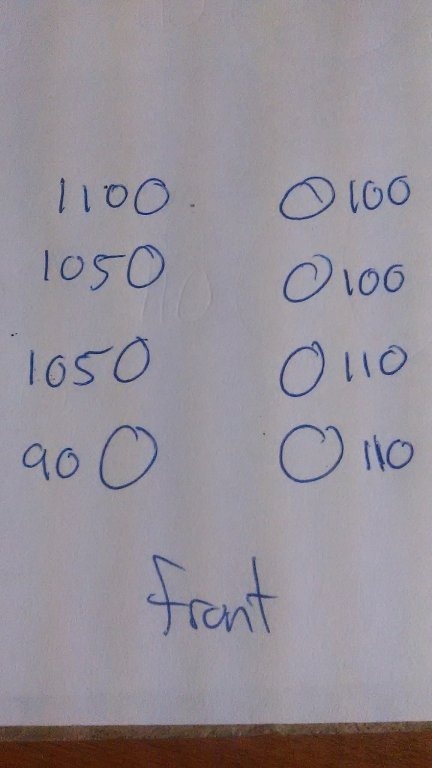 110 O O 100
105 O O 100
105 O O 110
90 O O 110
front